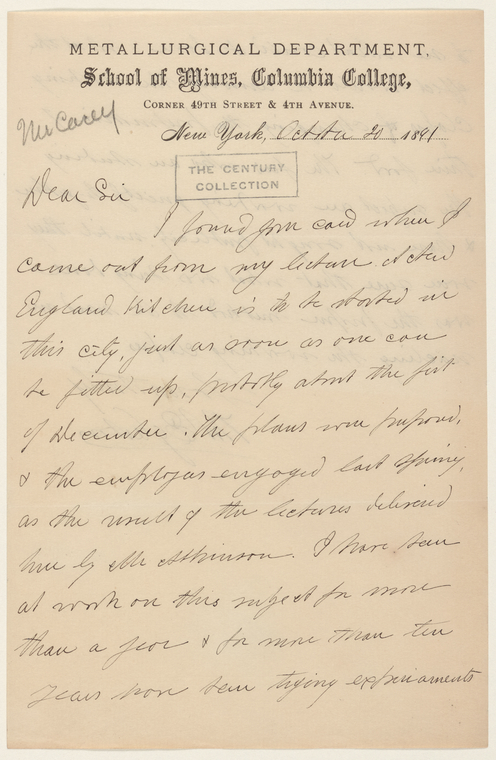 METALLURGICAL DEPARTMENT,
School of Mines, Columbia College,
CORNER 49TH STREET & 4TH AVENUE.
Mr Carey
New York, October 20 1891
THE CENTURY
COLLECTION
Dear Sir
I found your card when I
came out from my lecture. A New
England Kitchen is to be started in
this city, just as soon as one can
be fitted up, probably about the first
of December. The plans were prepared,
& the employees engaged last spring,
as the result of the lectures delivered
here by Mr Atkinson. I have been
at work on this subject for more
than a year & for more than ten
years have been trying experiments